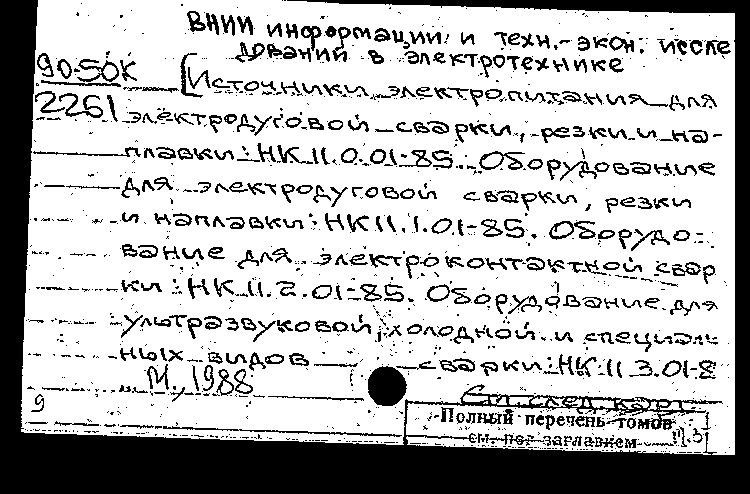 ВНИИ информации и техн.-экон. иссле
дований в электротехнике
90-50К
2261
[Источники электропитания для
электродуговой сварки, резки и на-
плавки: НК 11.0.01-85. Оборудование
для электродуговой сварки, резки
и наплавки: НК 11.1.01-85. Оборудо-
вание для электроконтактной свар
ки: НК 11.2.01-85. Оборудование для
ультразвуковой, холодной и специаль
ных видов сварки: НК 11 3.01-8
М., 1988
См. след. карт.
9
Полный перечень томов
см. под заглавием